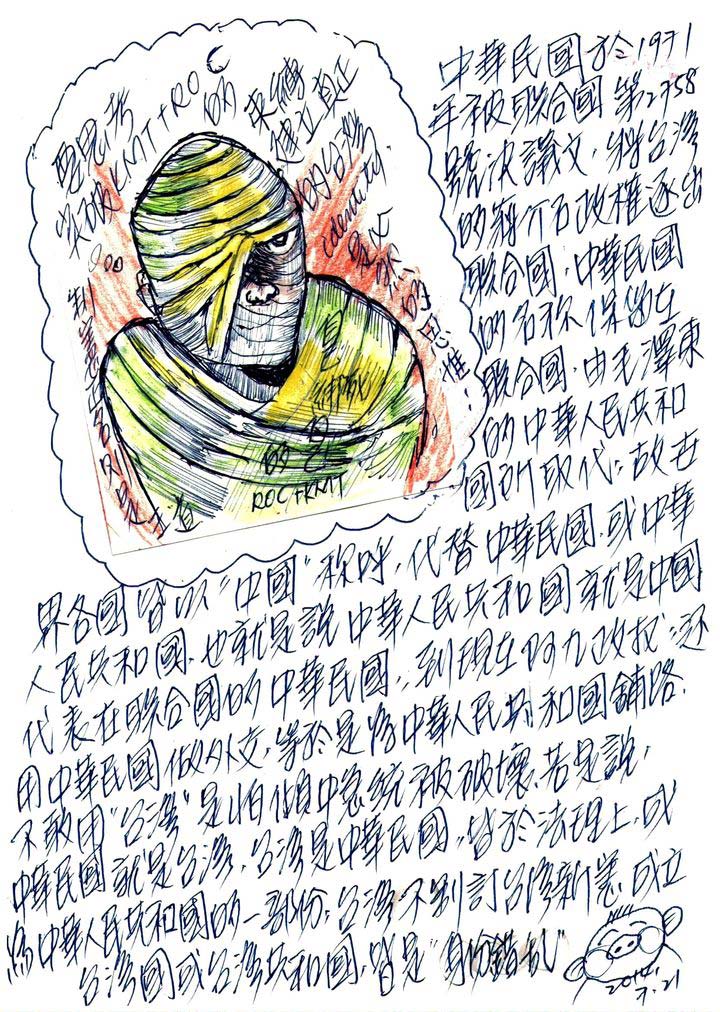 中華民國於1971
年被聯合國第2758
號決議文，將台灣
的蔣介石政權逐出
聯合國，中華民國
的名称保留在
聯合國，由毛澤東
的中華人民共和
國所取代。故世
界各國皆以“中國”称呼，代替中華民國，或中華
人民共和國，也就是說中華人民共和國就是中國
代表在聯合國的中華民國，到現在阿九政权还
用中華民國做外交，等於是為中華人民共和國鋪路，
不敢用“台灣”是怕中急統被破壞，若是說，
中華民國就是台灣，台灣是中華民國，皆於法理上，成
為中華人民共和國的一部份，台灣不制訂台灣新憲，成立
台灣國或台灣共和國，皆是“身份錯乱”
突破KMT+ROC
的束縛
建立真正
的台灣
identity
的思惟
自己綁死自己
的
ROC+KMT
2014.
7.21